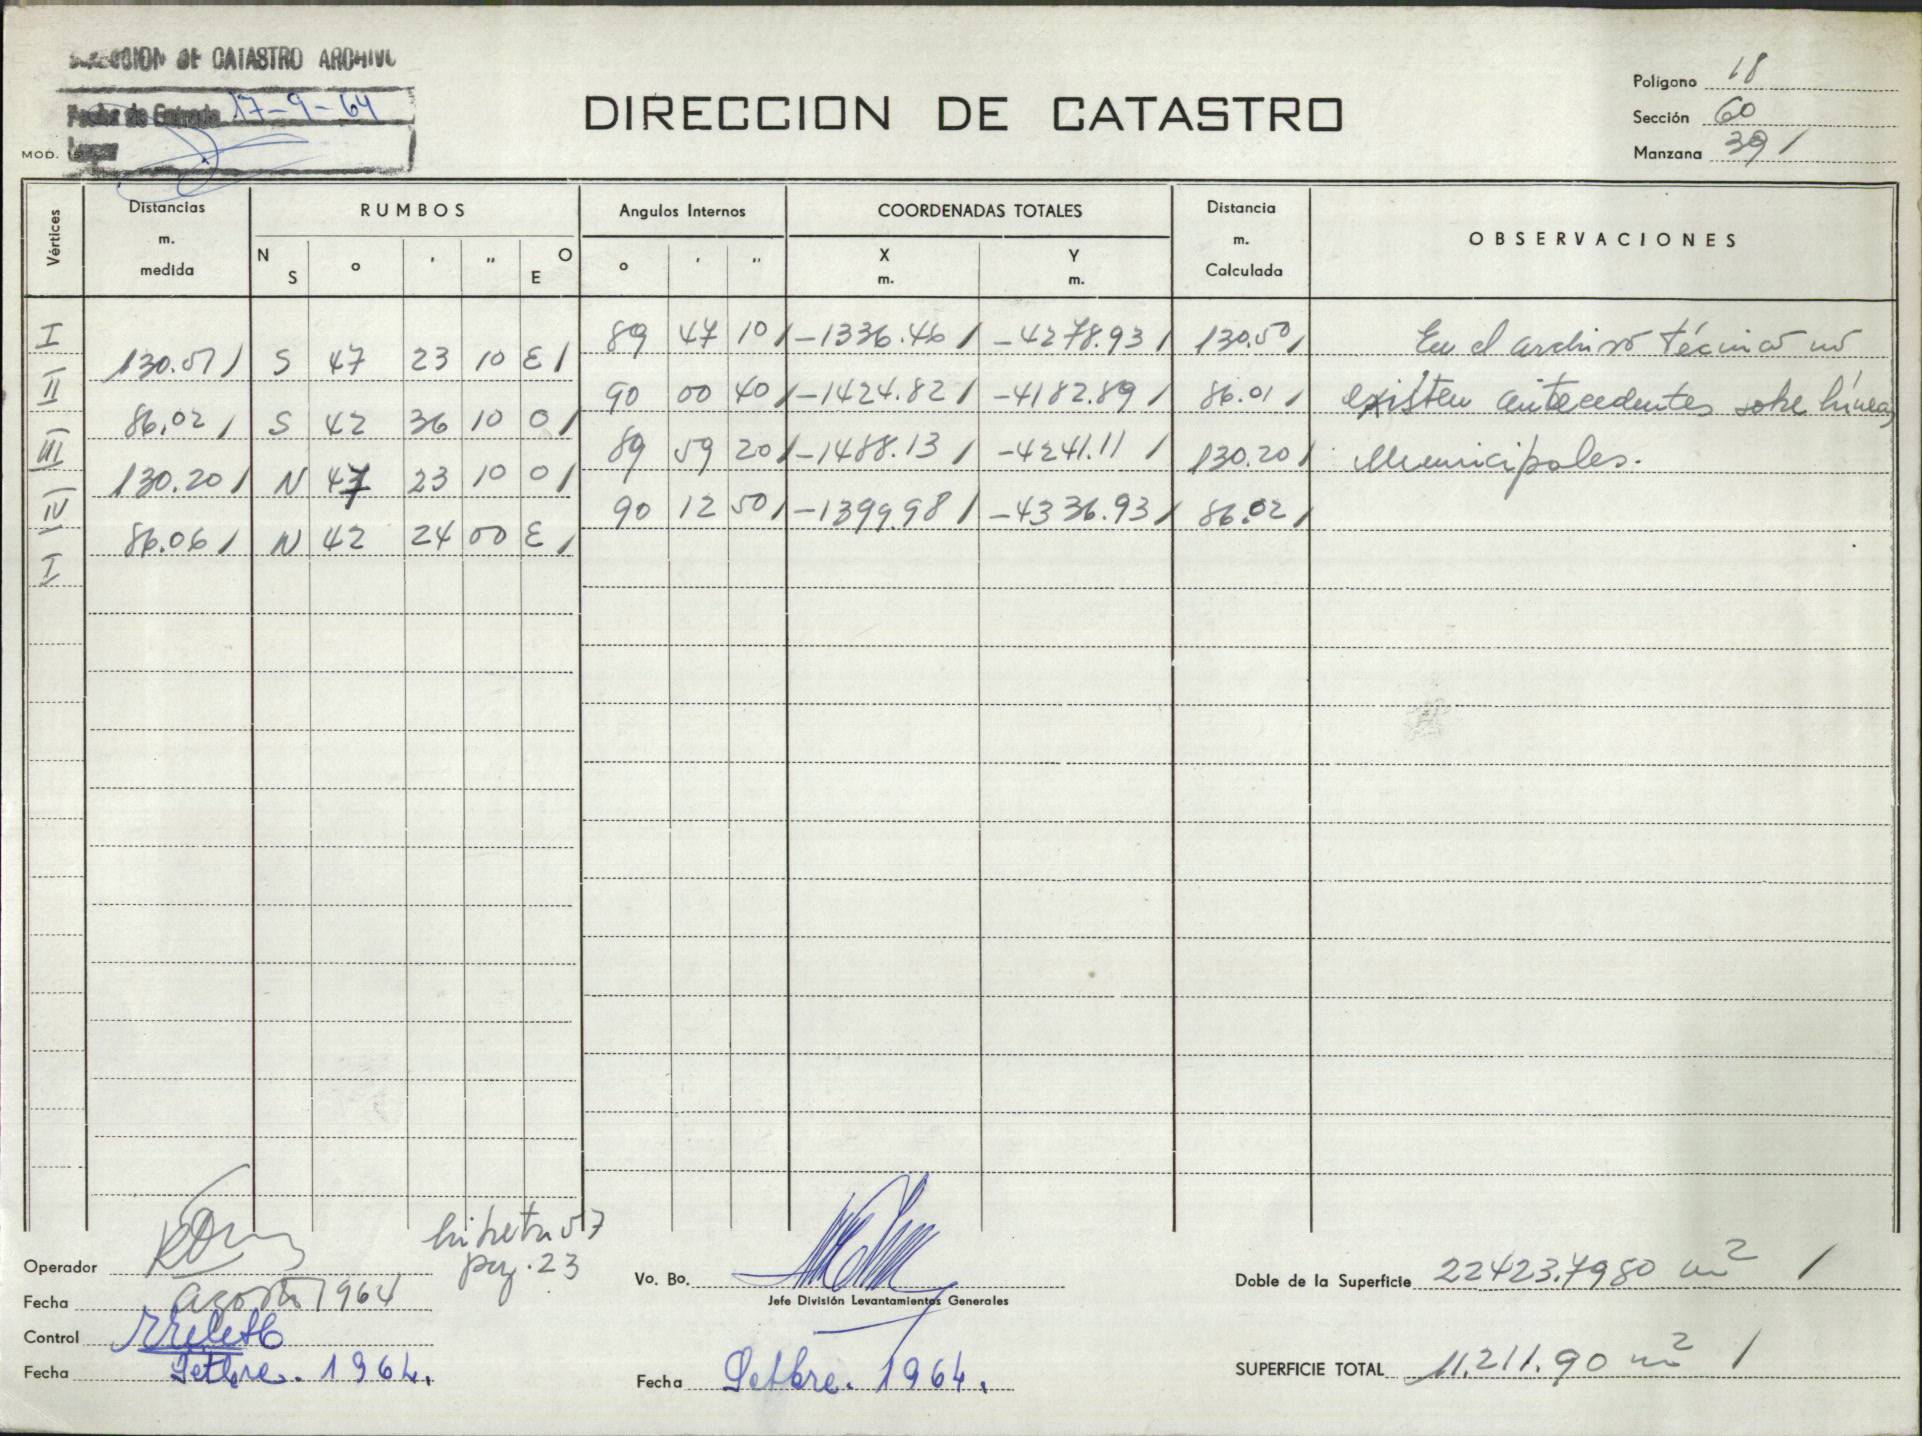 DIRECCION DE CATASTRO ARCHIVO
Fecha de Entrada 17-9-64
Legajo
MOD.
DIRECCION DE CATASTRO
Polígono 18
Sección 60
Manzana 39 /
Vértices
Distancias m. medida
RUMBOS
N S ° ' " O E
Angulos Internos
° ' "
COORDENADAS TOTALES
X m. Y m.
Distancia m. Calculada
OBSERVACIONES
I 89 47 10 / -1336.46 / -4278.93 / 130.50 / En el archivo técnico no
130.51 / S 47 23 10 E /
II 90 00 40 / -1424.82 / -4182.89 / 86.01 / existen antecedentes sobre líneas
86.02 / S 42 36 10 O /
III 89 59 20 / -1488.13 / -4241.11 / 130.20 / Municipales.
130.20 / N 47 23 10 O /
IV 90 12 50 / -1399.98 / -4336.93 / 86.02 /
86.06 / N 42 24 00 E /
I
libreta 57
pag. 23
Operador
Fecha agosto 1964
Control
Fecha Setbre. 1964.
Vo. Bo.
Jefe División Levantamientos Generales
Fecha Setbre. 1964.
Doble de la Superficie 22423.7980 m² /
SUPERFICIE TOTAL 11.211.90 m² /